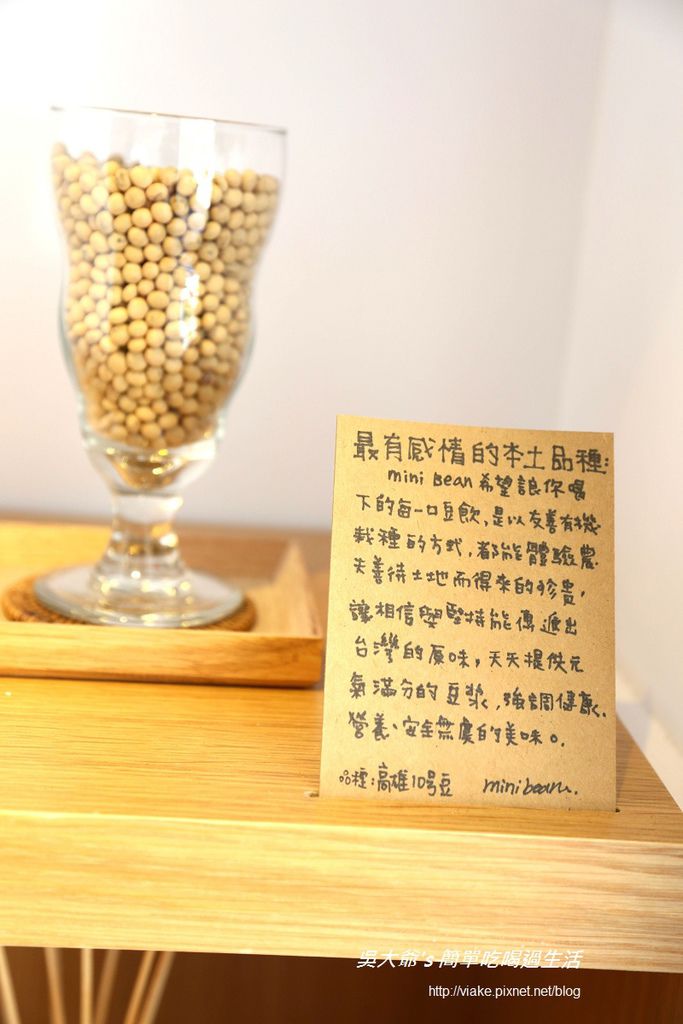 最有感情的本土品種:
mini Bean 希望讓你喝
下的每一口豆飲,是以友善有機
栽種的方式,都能體驗農
夫善待土地而得來的珍貴,
讓相信與堅持能傳遞出
台灣的原味,天天提供元
氣滿分的豆漿,強調健康、
營養、安全無虞的美味。
品種:高雄10号豆 minibean.
吳大爺's 簡單吃喝過生活
http://viake.pixnet.net/blog